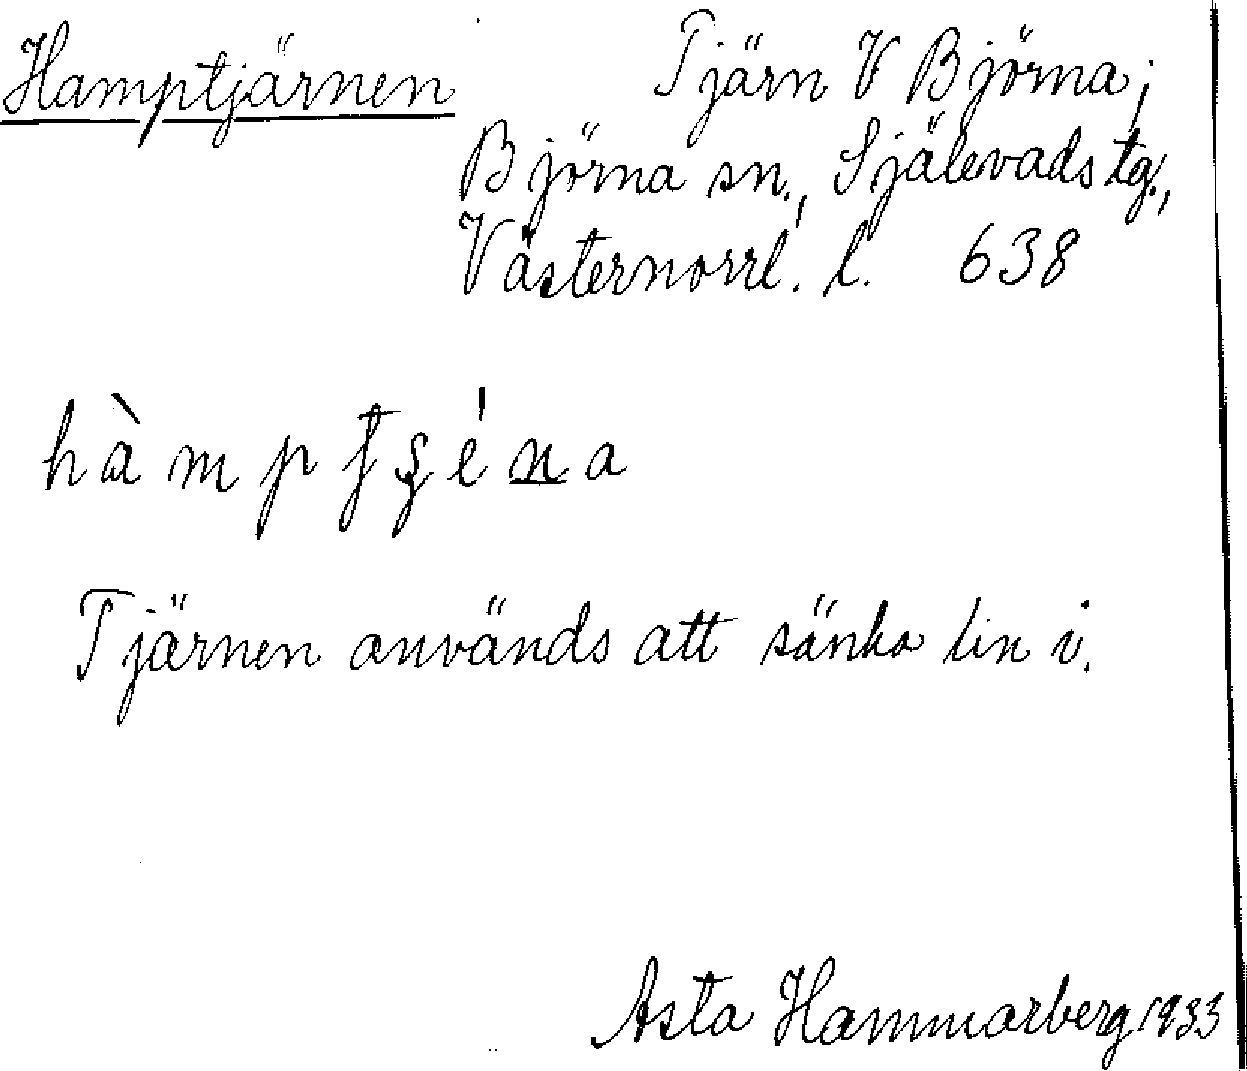 Hamptjärnen Tjärn V Björna;
Björna sn., Själevads tg.,
Västernorrl. l. 638
Tjärnen används att sänka lin i.
Asta Hammarberg 1933